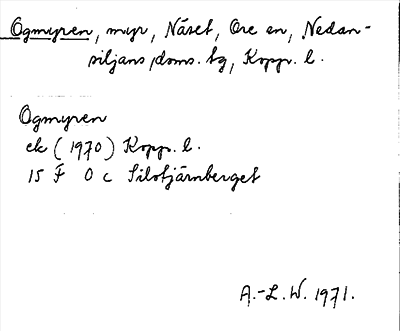 Ögmyren, myr, Näset, Ore sn, Nedan-
siljans doms. tg, Kopp. l.
Ögmyren
ek (1970) Kopp. l.
15 F 0 c Silotjärnberget
A.-L. W. 1971.